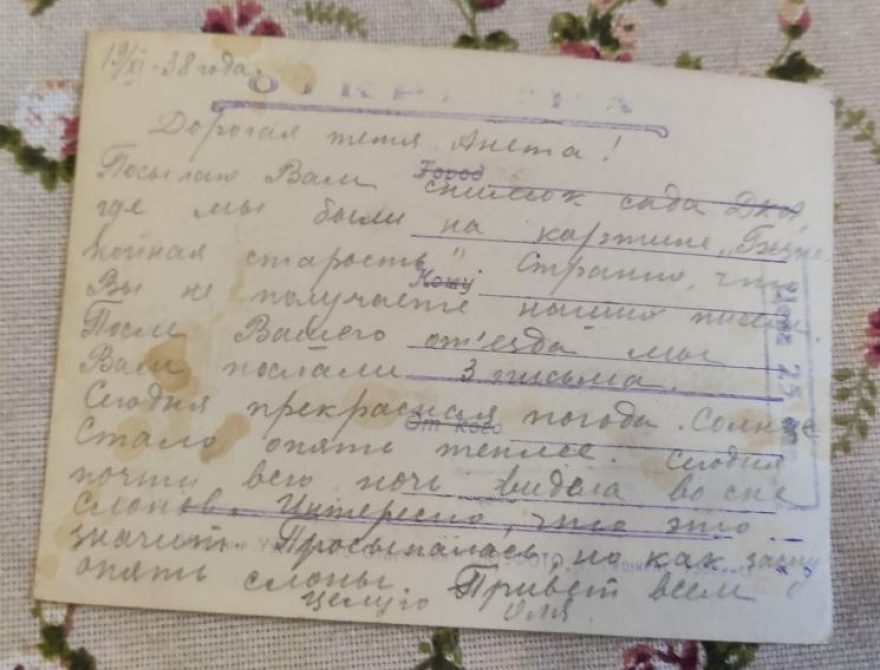 19/XI-38 года.
ОТКРЫТКА
Дорогая тетя Анета!
Город
Посылаю Вам снимок сада ДКА,
где мы были на картине „Беспо-
койная старость". Странно, что
Кому
Вы не получаете наших писем.
После Вашего от'езда мы
Вам послали 3 письма.
Сегодня прекрасная погода. Солнце
От кого
Стало опять теплее. Сегодня
почти всю ночь видела во сне
слонов. Интересно, что это
значит. Просыпалась, но как засну
опять слоны. Привет всем
Целую Оля
Цена 25 к
ФОТО